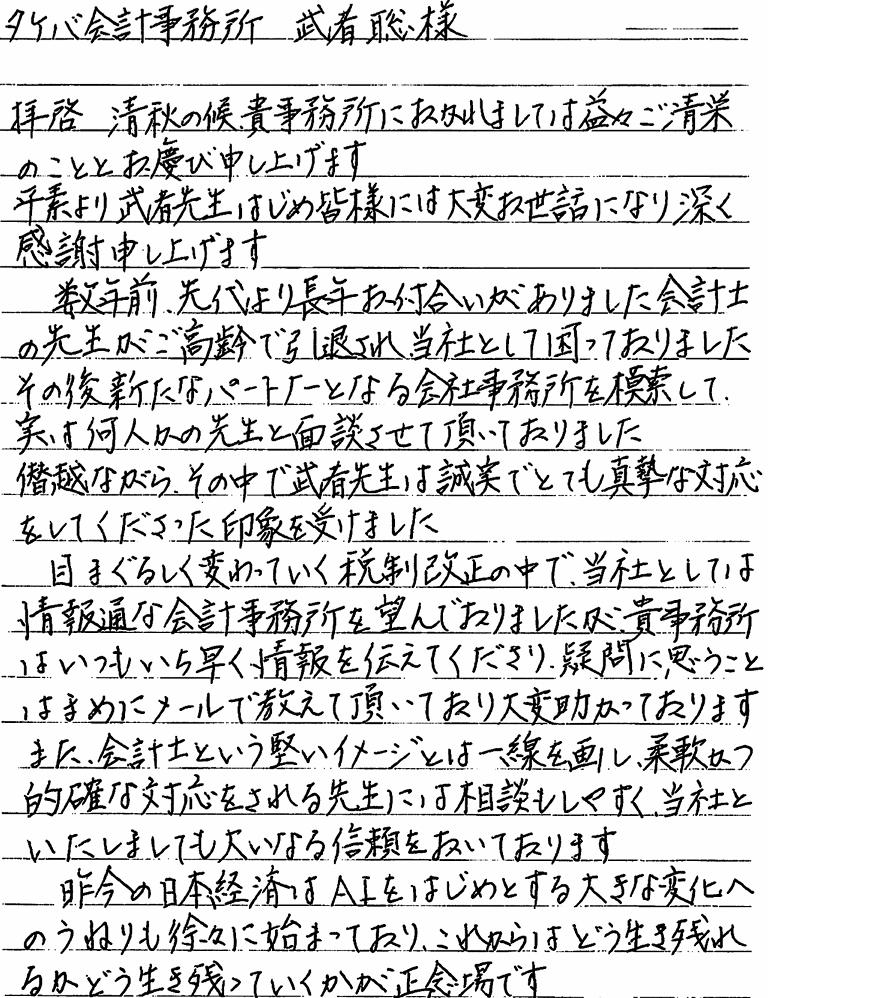 タケバ会計事務所　武者聡様
拝啓　清秋の候、貴事務所におかれましては益々ご清栄
のこととお慶び申し上げます
平素より武者先生はじめ皆様には大変お世話になり深く
感謝申し上げます
数年前、先代より長年お付合いがありました会計士
の先生がご高齢で引退され当社として困っておりました
その後新たなパートナーとなる会社事務所を模索して、
実は何人かの先生と面談させて頂いておりました
僭越ながら、その中で武者先生は誠実でとても真摯な対応
をしてくださった印象を受けました
目まぐるしく変わっていく税制改正の中で、当社としては
情報通な会計事務所を望んでおりましたが、貴事務所
はいつもいち早く情報を伝えてくださり、疑問に思うこと
はまめにメールで教えて頂いており大変助かっております
また、会計士という堅いイメージとは一線を画し、柔軟かつ
的確な対応をされる先生には相談もしやすく、当社と
いたしましても大いなる信頼をおいております
昨今の日本経済はAIをはじめとする大きな変化へ
のうねりも徐々に始まっており、これからはどう生き残れ
るかどう生き残っていくかが正念場です